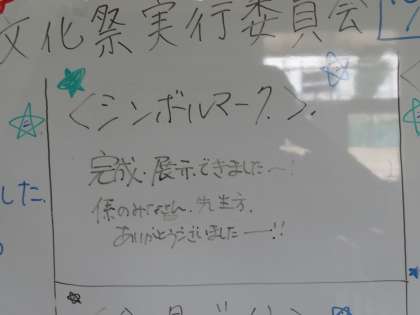 文化祭実行委員会
<シンボルマーク>.
完成・展示できました〜!
係のみなさん、先生方、
ありがとうございましたー!!
した.